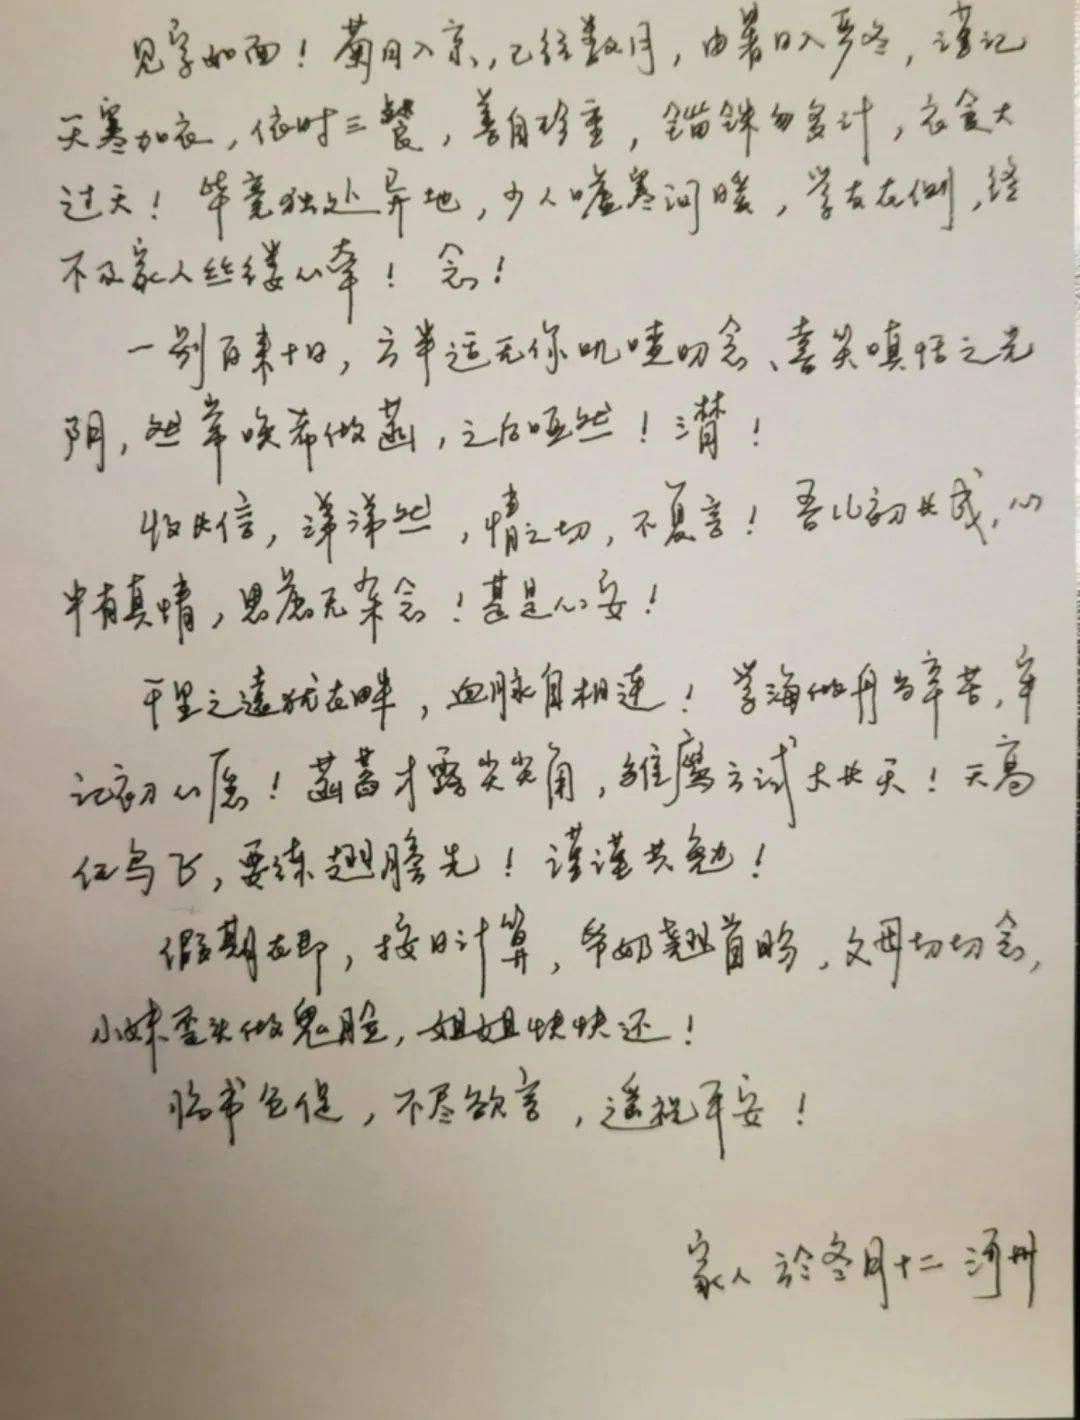 见字如面！菊月入京，已经数月，由暑日入严冬，谨记
天寒加衣，依时三餐，善自珍重，锱铢勿多计，衣食大
过天！毕竟独处异地，少人嘘寒问暖，学友在侧，终
不及家人丝缕心牵！念！
一别百来十日，方半适无你叽喳叨念、喜笑嗔恬之光
阴，然常唤希做菡，之后哑然！潸！
收长信，涕涕然，情之切，不复言！吾儿初长成，心
中有真情，思虑无杂念！甚是心安！
千里之遥犹在畔，血脉自相连！学海做舟当辛苦，牢
记初心愿！菡萏才露尖尖角，雏鹰方试大长天！天高
任鸟飞，要练翅膀先！谨谨共勉！
假期在即，按日计算，爷奶翘首盼，父母切切念，
小妹歪头做鬼脸，姐姐快快还！
临书仓促，不尽欲言，遥祝平安！
家人 於冬月十二 河州